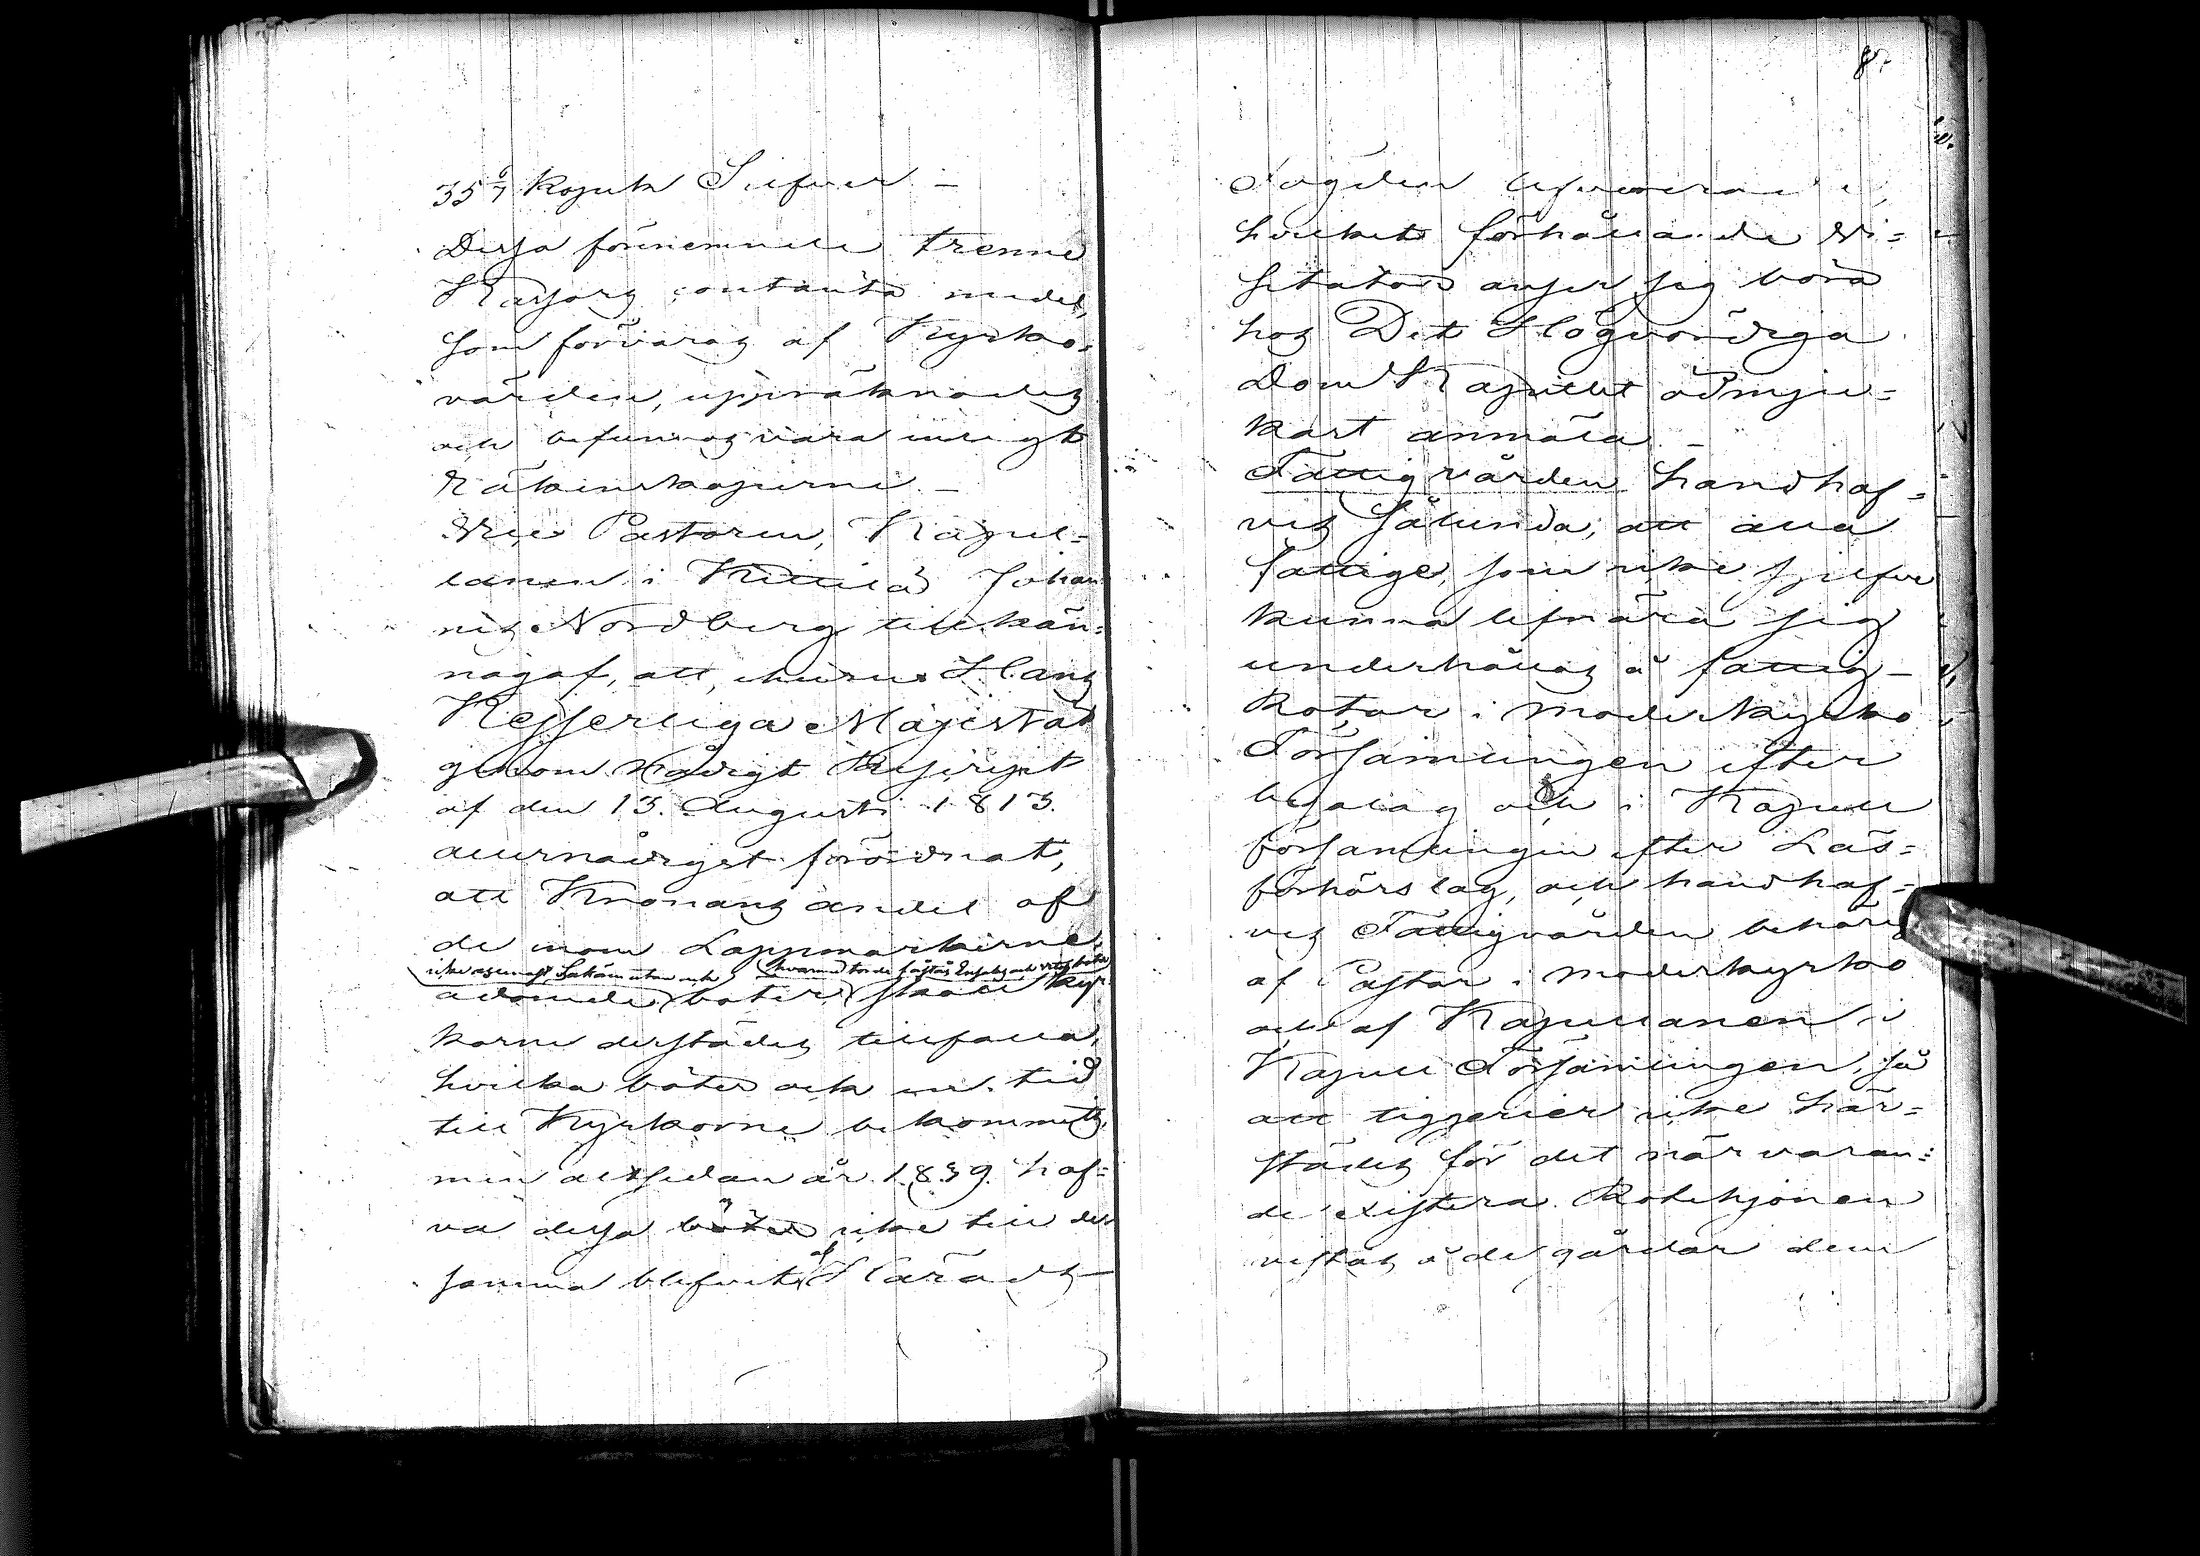 35 6/7 Kopek Silfver –
Dessa förenemnde trenne
Kassors contanta medel,
som förvaras af Kyrko-
värden, uppräknades
och befunnos vara enligt
Räkenskaperne. –
Pastoren, Kapel-
lanen i Kittilä Johan
Nordberg tillkän-
nagaf, att, ehuru Hans
Kejserliga Majestät
genom Nådigt Rescript
af den 13. Augusti 1813.
allernådigst förordnat,
att Kronans andel af
de inom Lappmarkerne
ådömde böter skall kyr-
korne derstädes tillfalla,
hvilka böter ock en tid
till Kyrkorne bekommits,
men altsedan år 1839. haf-
va dessa böter icke till den
samma blifvit af Härads-
8.
Fogden levererade,
hvilket förhållande Vi-
sitator anser sig böra
hos Det Högvördiga
Dom Kapitlet ödmju-
kast anmäla. –
Fattigvården handhaf-
ves sålunda, att alla
fattige, som icke sjelfve
kunna lifnära sig
underhållas å fattig-
Rotar i moderkyrko
Församlingen efter
bylag och i Kapell
församlingen efter Läs-
förhörslag, och handhaf-
ves Fattigvården
af Pastor i moderkyrko
och af Kapellanen i
Kapell Församlingen, så
att tiggerier icke här-
städes för det närvaran-
de existera. Rotehjonen
vistas å de gårdar dem